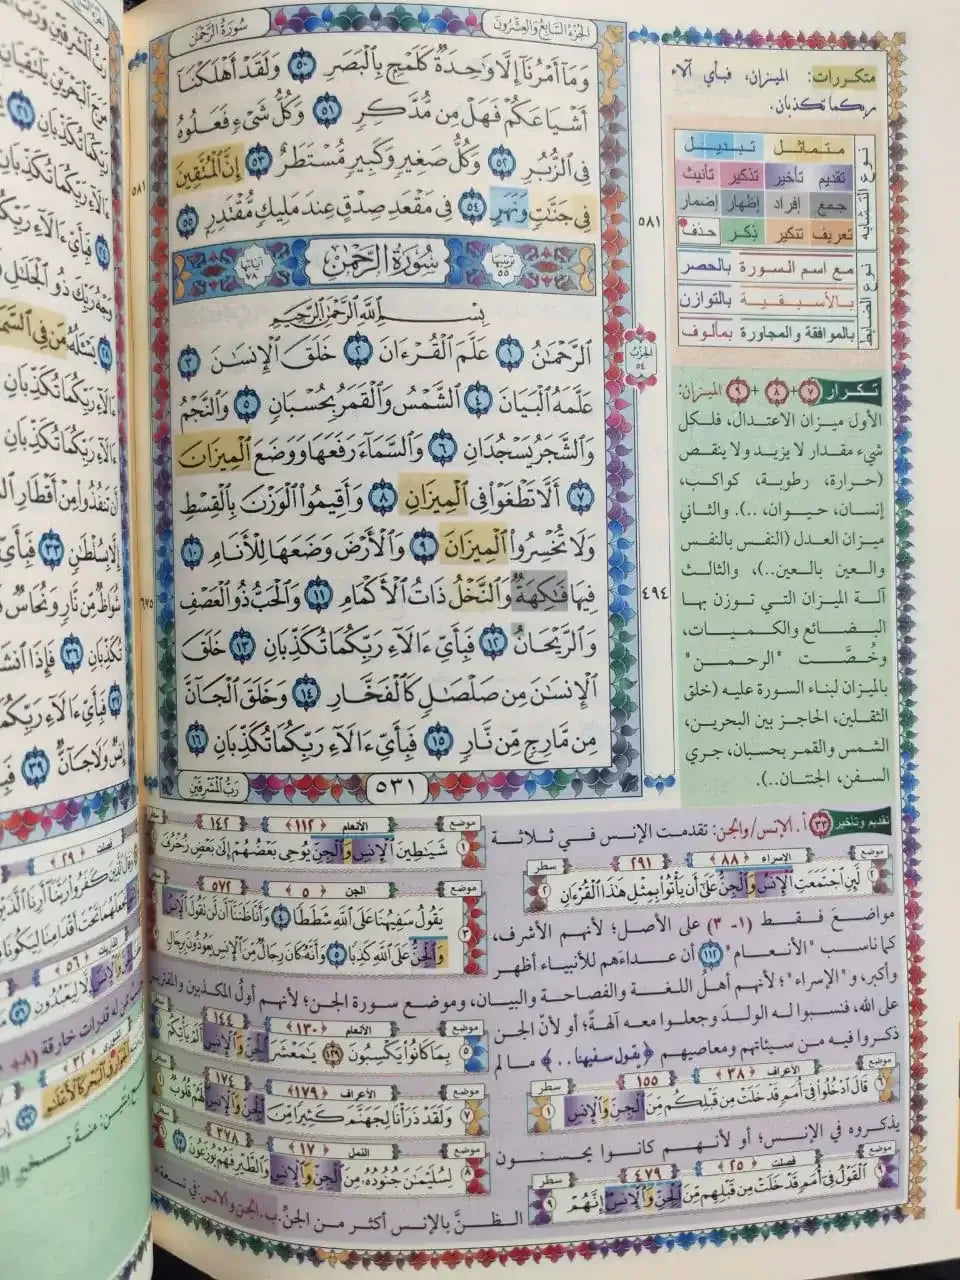 سُورَةُ الرَّحْمٰن
الجُزءُ السَّابِعُ وَالعِشْرُونَ
وَمَآ أَمْرُنَآ إِلَّا وَٰحِدَةٌ كَلَمْحٍۭ بِٱلْبَصَرِ ٥٠ وَلَقَدْ أَهْلَكْنَآ
أَشْيَاعَكُمْ فَهَلْ مِن مُّدَّكِرٍ ٥١ وَكُلُّ شَىْءٍ فَعَلُوهُ
فِى ٱلزُّبُرِ ٥٢ وَكُلُّ صَغِيرٍ وَكَبِيرٍ مُّسْتَطَرٌ ٥٣ إِنَّ ٱلْمُتَّقِينَ
فِى جَنَّٰتٍ وَنَهَرٍ ٥٤ فِى مَقْعَدِ صِدْقٍ عِندَ مَلِيكٍ مُّقْتَدِرٍۭ ٥٥
سُورَةُ الرَّحْمٰن
بِسْمِ ٱللَّهِ ٱلرَّحْمَٰنِ ٱلرَّحِيمِ
ٱلرَّحْمَٰنُ ١ عَلَّمَ ٱلْقُرْءَانَ ٢ خَلَقَ ٱلْإِنسَٰنَ ٣
عَلَّمَهُ ٱلْبَيَانَ ٤ ٱلشَّمْسُ وَٱلْقَمَرُ بِحُسْبَانٍ ٥ وَٱلنَّجْمُ
وَٱلشَّجَرُ يَسْجُدَانِ ٦ وَٱلسَّمَآءَ رَفَعَهَا وَوَضَعَ ٱلْمِيزَانَ
٧ أَلَّا تَطْغَوْا۟ فِى ٱلْمِيزَانِ ٨ وَأَقِيمُوا۟ ٱلْوَزْنَ بِٱلْقِسْطِ
وَلَا تُخْسِرُوا۟ ٱلْمِيزَانَ ٩ وَٱلْأَرْضَ وَضَعَهَا لِلْأَنَامِ ١٠
فِيهَا فَٰكِهَةٌ وَٱلنَّخْلُ ذَاتُ ٱلْأَكْمَامِ ١١ وَٱلْحَبُّ ذُو ٱلْعَصْفِ
وَٱلرَّيْحَانُ ١٢ فَبِأَىِّ ءَالَآءِ رَبِّكُمَا تُكَذِّبَانِ ١٣ خَلَقَ
ٱلْإِنسَٰنَ مِن صَلْصَٰلٍ كَٱلْفَخَّارِ ١٤ وَخَلَقَ ٱلْجَآنَّ
مِن مَّارِجٍ مِّن نَّارٍ ١٥ فَبِأَىِّ ءَالَآءِ رَبِّكُمَا تُكَذِّبَانِ ١٦
٥٣١
رَبُّ ٱلْمَشْرِقَيْنِ
٥٨١
الحِزْبُ ٥٤
٤٩٤
٥٨١
٦٧٥
متكررات: الميزان، فبأي آلاء
ربكما تكذبان.
نوع التشابه
متماثل تبديل
تقديم تأخير تذكير تأنيث
جمع إفراد إظهار إضمار
تعريف تنكير ذكر حذف
نوع الضابط
مع اسم السورة بالحصر
بالأسبقية بالتوازن
بالموافقة والمجاورة بمألوف
تكرار ٧ + ٨ + ٩ الميزان:
الأول ميزان الاعتدال، فلكل
شيء مقدار لا يزيد ولا ينقص
(حرارة، رطوبة، كواكب،
إنسان، حيوان، ..). والثاني
ميزان العدل (النفس بالنفس
والعين بالعين..)، والثالث
آلة الميزان التي توزن بها
البضائع والكميات،
وخُصَّت "الرحمن"
بالميزان لبناء السورة عليه (خلق
الثقلين، الحاجز بين البحرين،
الشمس والقمر بحسبان، جري
السفن، الجنتان..).
تقديم وتأخير ٣٣ أ. الإنس/والجن: تقدمت الإنس في ثلاثة
موضع الإسراء ﴿٨٨﴾ ٢٩١ سطر
٢ لَّئِنِ ٱجْتَمَعَتِ ٱلْإِنسُ وَٱلْجِنُّ عَلَىٰٓ أَن يَأْتُوا۟ بِمِثْلِ هَٰذَا ٱلْقُرْءَانِ
موضع الأنعام ﴿١١٢﴾ ١٤٢ سطر
١ شَيَٰطِينَ ٱلْإِنسِ وَٱلْجِنِّ يُوحِى بَعْضُهُمْ إِلَىٰ بَعْضٍ زُخْرُفَ
موضع الجن ﴿٥﴾ ٥٧٢ سطر
٣ يَقُولُ سَفِيهُنَا عَلَى ٱللَّهِ شَطَطًا ٤ وَأَنَّا ظَنَنَّآ أَن لَّن تَقُولَ ٱلْإِنسُ
وَٱلْجِنُّ عَلَى ٱللَّهِ كَذِبًا ٥ وَأَنَّهُۥ كَانَ رِجَالٌ مِّنَ ٱلْإِنسِ يَعُوذُونَ بِرِجَالٍ
مواضع فقط (١-٣) على الأصل؛ لأنهم الأشرف،
كما ناسب "الأنعام" ١١٢ أن عداءهم للأنبياء أظهر
وأكبر، و"الإسراء"؛ لأنهم أهل اللغة والفصاحة والبيان، وموضع سورة الجن؛ لأنهم أول المكذبين والمفترين
على الله، فنسبوا له الولد وجعلوا معه آلهة؛ أو لأن الجن
ذكروا فيه من سيئاتهم ومعاصيهم ﴿يقول سفيهنا..﴾ ما لم
موضع الأنعام ﴿١٣٠﴾ ١٤٤ سطر
٥ بِمَا كَانُوا۟ يَكْسِبُونَ ١٢٩ يَٰمَعْشَرَ ٱلْجِنِّ وَٱلْإِنسِ أَلَمْ يَأْتِكُمْ
موضع الأعراف ﴿٣٨﴾ ١٥٥ سطر
٦ قَالَ ٱدْخُلُوا۟ فِىٓ أُمَمٍ قَدْ خَلَتْ مِن قَبْلِكُم مِّنَ ٱلْجِنِّ وَٱلْإِنسِ
موضع الأعراف ﴿١٧٩﴾ ١٧٤ سطر
٧ وَلَقَدْ ذَرَأْنَا لِجَهَنَّمَ كَثِيرًا مِّنَ ٱلْجِنِّ وَٱلْإِنسِ لَهُمْ قُلُوبٌ
يذكروه في الإنس؛ أو لأنهم كانوا يحسنون
موضع النمل ﴿١٧﴾ ٣٧٨ سطر
٨ لِسُلَيْمَٰنَ جُنُودُهُۥ مِنَ ٱلْجِنِّ وَٱلْإِنسِ وَٱلطَّيْرِ فَهُمْ يُوزَعُونَ ١٧
موضع فصلت ﴿٢٥﴾ ٤٧٩ سطر
٩ ٱلْقَوْلُ فِىٓ أُمَمٍ قَدْ خَلَتْ مِن قَبْلِهِم مِّنَ ٱلْجِنِّ وَٱلْإِنسِ إِنَّهُمْ
الظنَّ بالإنس أكثر من الجنِّ. ب. الجن والإنس: في تسعة